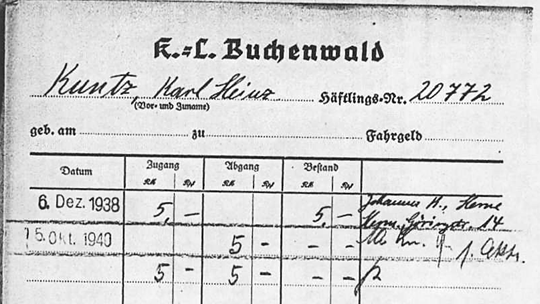 K.=L. Buchenwald
Kuntz, Karl Heinz Häftlings-Nr. 20772
(Vor- und Zuname)
geb. am zu Fahrgeld
Datum Zugang Abgang Bestand
RM RPf RM RPf RM RPf
6. Dez. 1938 5,- 5,- Johannes H., Herne
Herne, 14
15. Okt. 1940 5 - - -
5 - 5 -